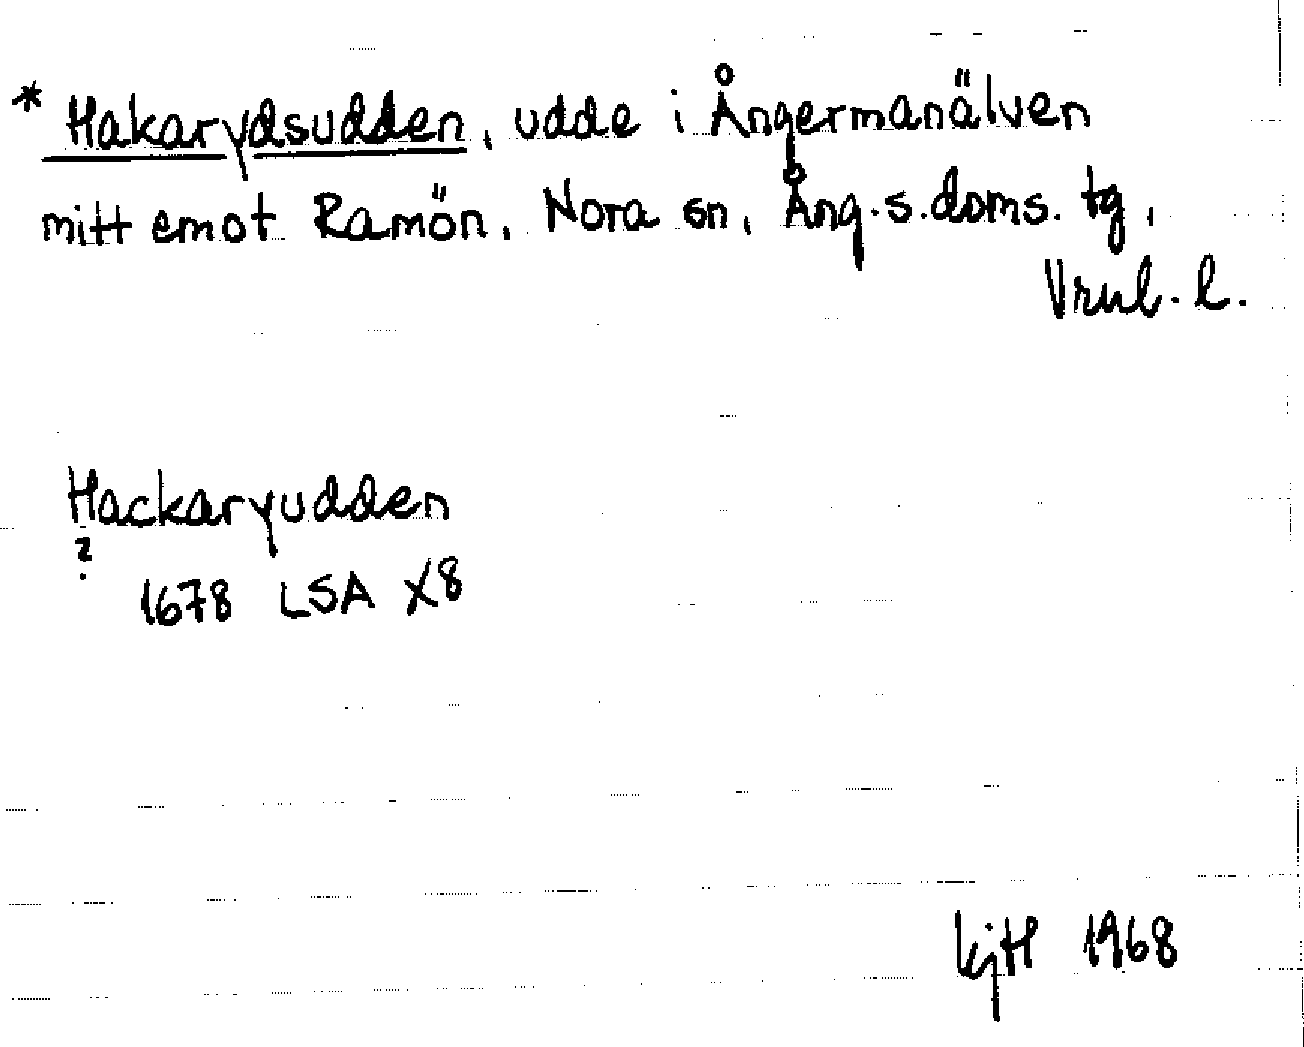 * Hakarydsudden, udde i Ångermanälven
mitt emot Ramön, Nora sn, Ång.s.doms. tg,
Vrnl. l.
Hackaryudden
?
1678 LSA X8
KjH 1968